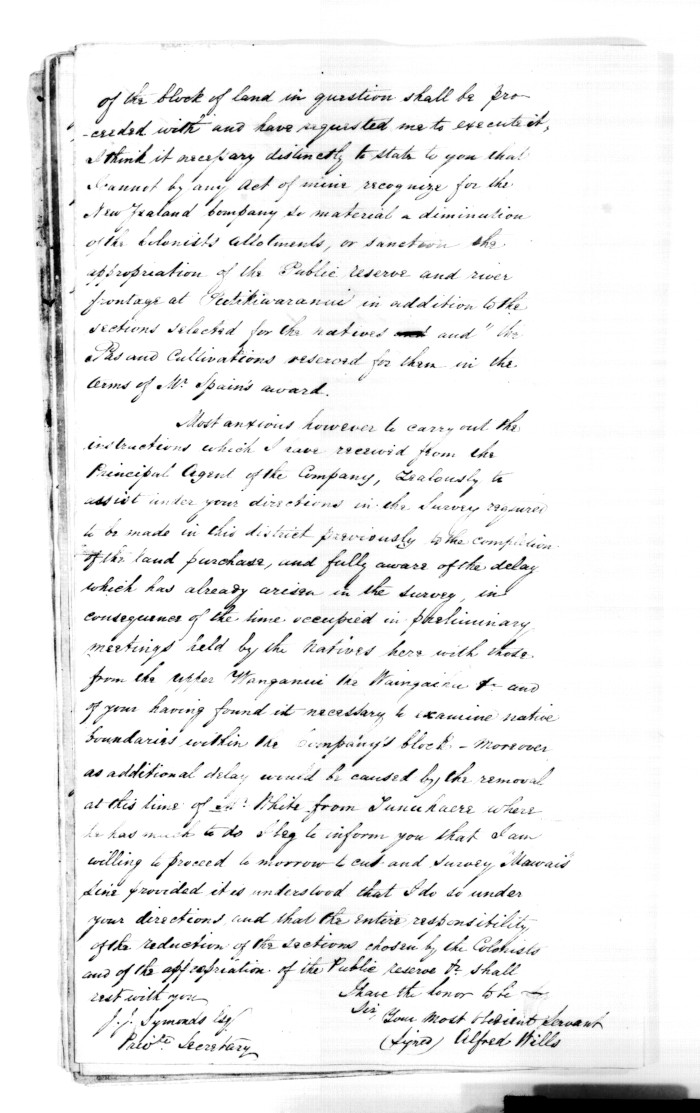 of the block of land in question shall be pro-
-ceeded with and have requested me to execute it,
I think it necessary distinctly to state to you that
I cannot by any act of mine recognize for the
New Zealand Company so material a diminution
of the Colonists allotments, or sanction the
appropriation of the Public reserve and river
frontage at in addition to the
sections selected for the natives and "the
Pas and Cultivations reserved for them in the
terms of Mr. Spain's award.
Most anxious however to carry out the
instructions which I have received from the
Principal Agent of the Company, Zealously to
assist under your directions in the Survey required
to be made in this district previously to the completion
of the land purchase, and fully aware of the delay
which has already arisen in the survey, in
consequence of the time occupied in preliminary
meetings held by the Natives here with those
from the upper Wanganui the &c and
of your having found it necessary to examine native
boundaries within the Company's block - Moreover
as additional delay would be caused by the removal
at this time of Mr. White from Tunuhaere where
he has much to do I beg to inform you that I am
willing to proceed to morrow to cut and survey "Mawai's
line provided it is understood that I do so under
your directions and that the entire responsibility
of the reduction of the sections chosen by the Colonists
and of the appropriation of the Public reserve &c shall
rest with you
I have the honor to be &c
Sir,
Your most obedient Servant
(Signed) Alfred Wills
J. J. Symonds Esq
Private Secretary